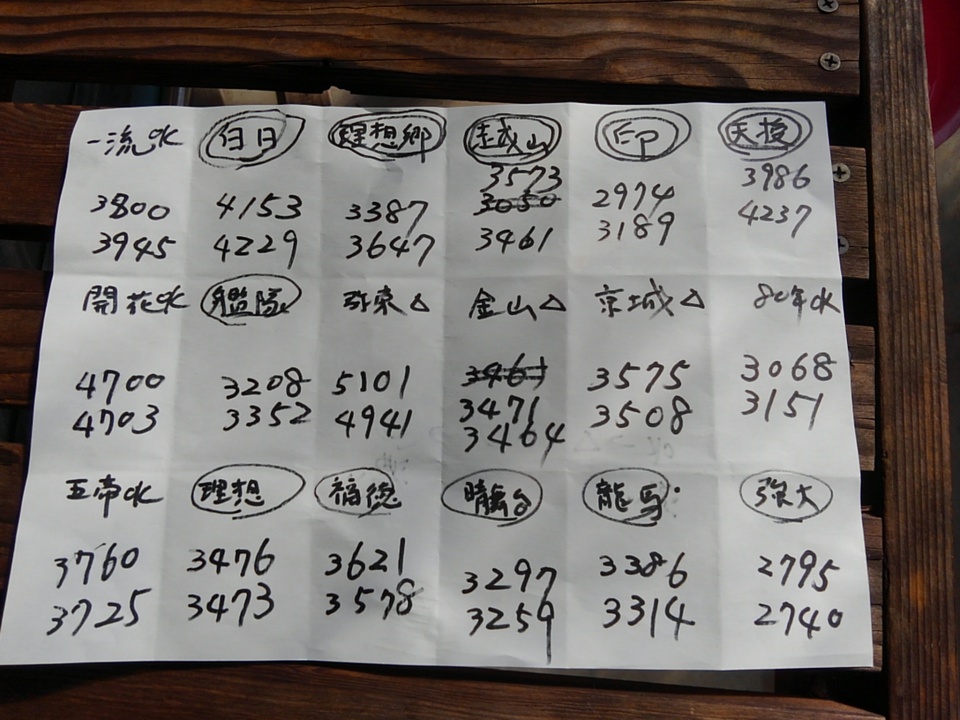 一流 ok 白日 理想鄉 越山 印 天授
3573 3986
3800 4153 3387 3050 2974 4237
3945 4229 3647 3461 3189
開花 ok 艦隊 弥東△ 金山△ 京城△ 80年ok
4700 3208 5101 3461 3575 3068
4703 3352 4941 3471 3508 3151
3464
五帝 ok 理想 福德 龍馬· 强大
3760 3476 3621 3297 3386 2795
3725 3473 3578 3259 3314 2740